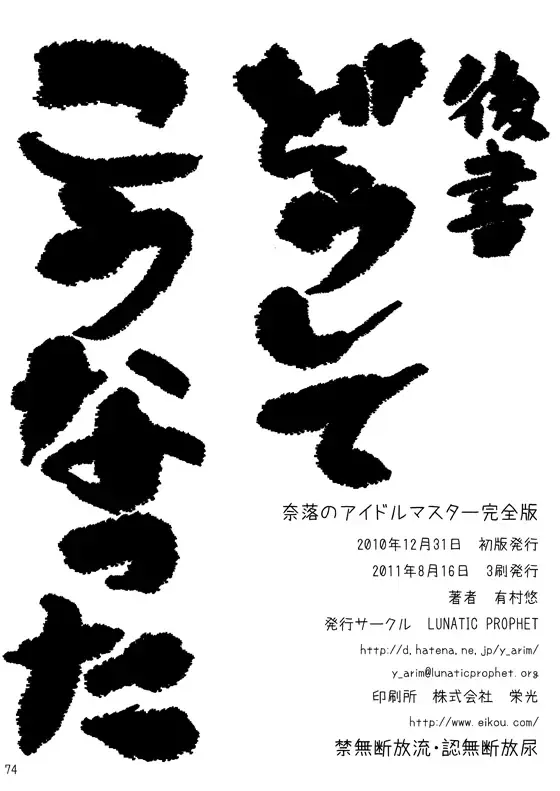 後書
どうして
こうなった
奈落のアイドルマスター完全版
2010年12月31日　初版発行
2011年8月16日　3刷発行
著者　有村悠
発行サークル　LUNATIC PROPHET
http://d.hatena.ne.jp/y_arim/
y_arim@lunaticprophet.org
印刷所　株式会社　栄光
http://www.eikou.com/
禁無断放流・認無断放尿
74